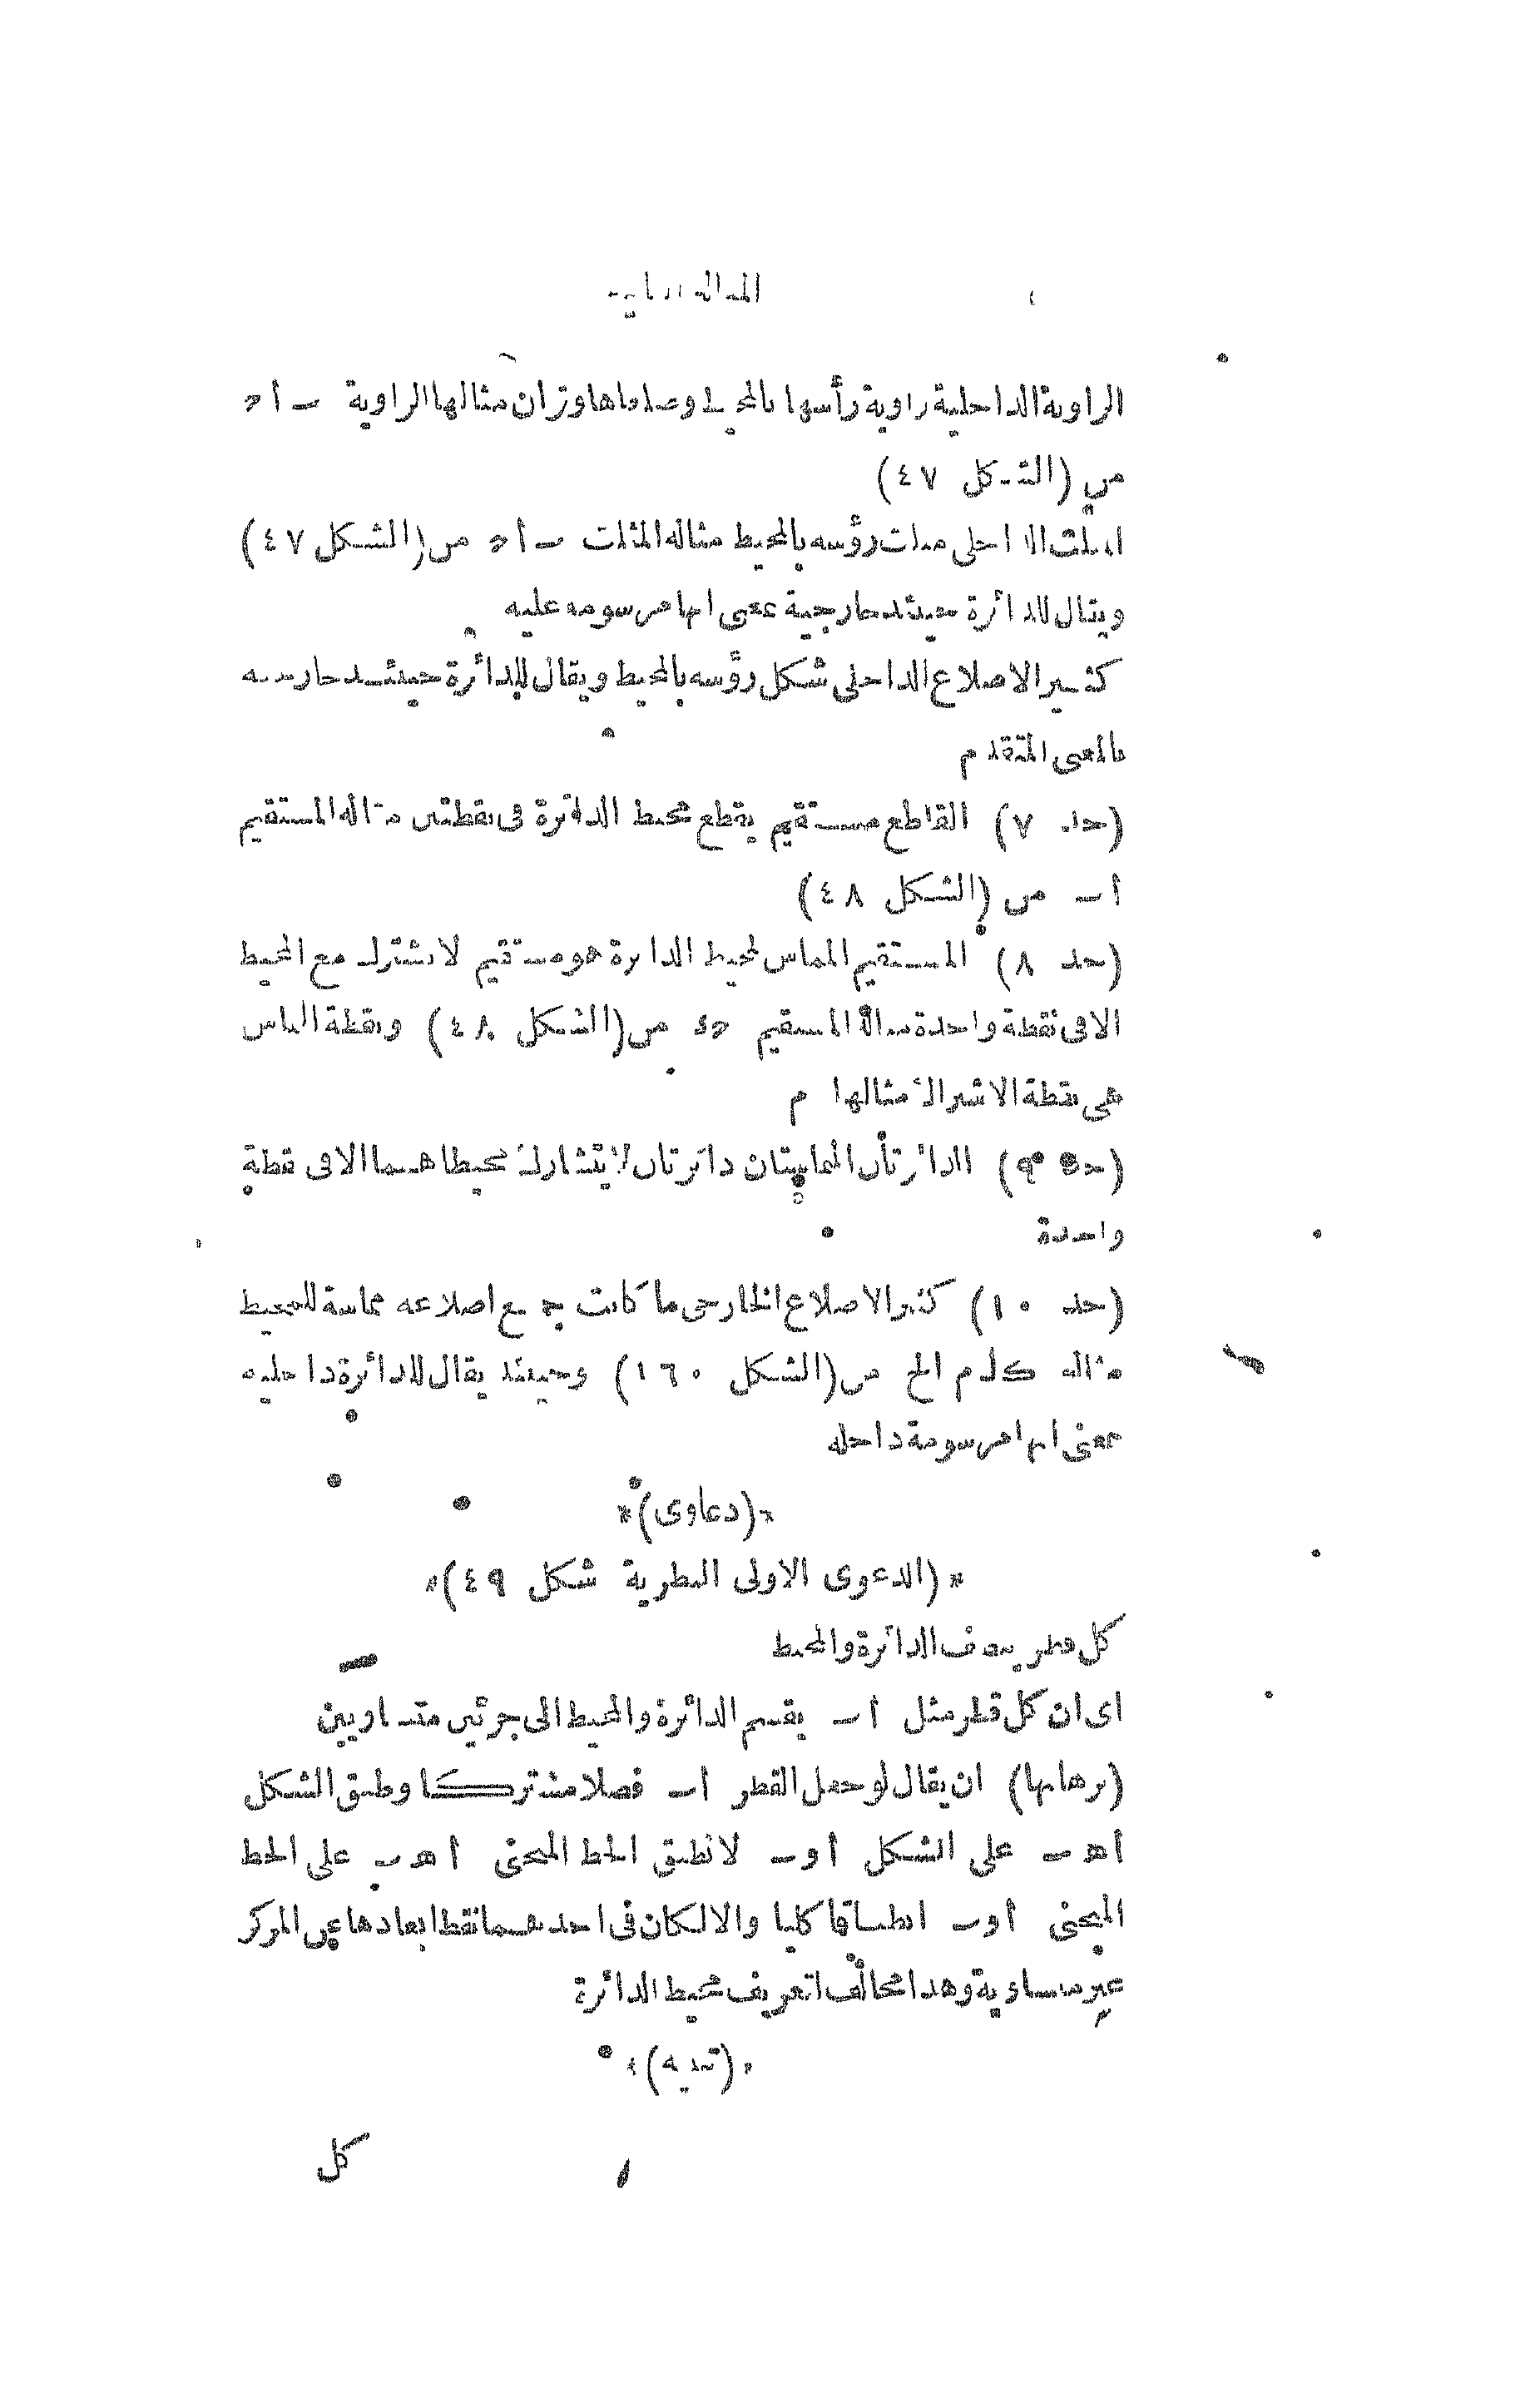 المقالة الثانية
الزاوية الداخلية زاوية رأسها بالمحيط وضلعاها وتران مثالها الزاوية ب أ ح
من (الشكل ٤٧)
المثلث الداخلى مثلث رؤسه بالمحيط مثاله المثلث ب أ ح من (الشكل ٤٧)
ويقال للدائرة حينئذ خارجية بمعنى انها مرسومه عليه
كثير الاضلاع الداخلى شكل رؤسه بالمحيط ويقال للدائرة حينئذ خارجيه
بالمعنى المتقدم
(حد ٧) القاطع مستقيم يقطع محيط الدائرة فى نقطتين مثاله المستقيم
أ ب من (الشكل ٤٨)
(حد ٨) المستقيم المماس لمحيط الدائرة هو مستقيم لا يشترك مع المحيط
الا فى نقطة واحدة مثاله المستقيم ح د من (الشكل ٤٨) ونقطة التماس
هى نقطة الاشتراك مثالها م
(حد ٩) الدائرتان المماستان دائرتان لا يتشارك محيطاهما الا فى نقطة
واحدة
(حد ١٠) كثير الاضلاع الخارجى ما كانت جميع اضلاعه مماسة للمحيط
مثاله ك ل م الخ من (الشكل ١٦٠) وحينئذ يقال للدائرة داخليه
بمعنى انها مرسومة داخله
*(دعاوى)*
*(الدعوى الاولى النظرية شكل ٤٩)*
كل قطر ينصف الدائرة والمحيط
اى ان كل قطر مثل أ ب يقسم الدائرة والمحيط الى جزئين متساويين
(برهانها) ان يقال لو جعل القطر أ ب فصلا مشتركا وطبق الشكل
أ هـ ب على الشكل أ و ب لانطبق الخط المنحنى أ هـ ب على الخط
المنحنى أ و ب انطباقا كليا والا لكان فى احدهما نقط ابعادها عن المركز
غير متساوية وهذا مخالف لتعريف محيط الدائرة
*(تنبيه)*
كل